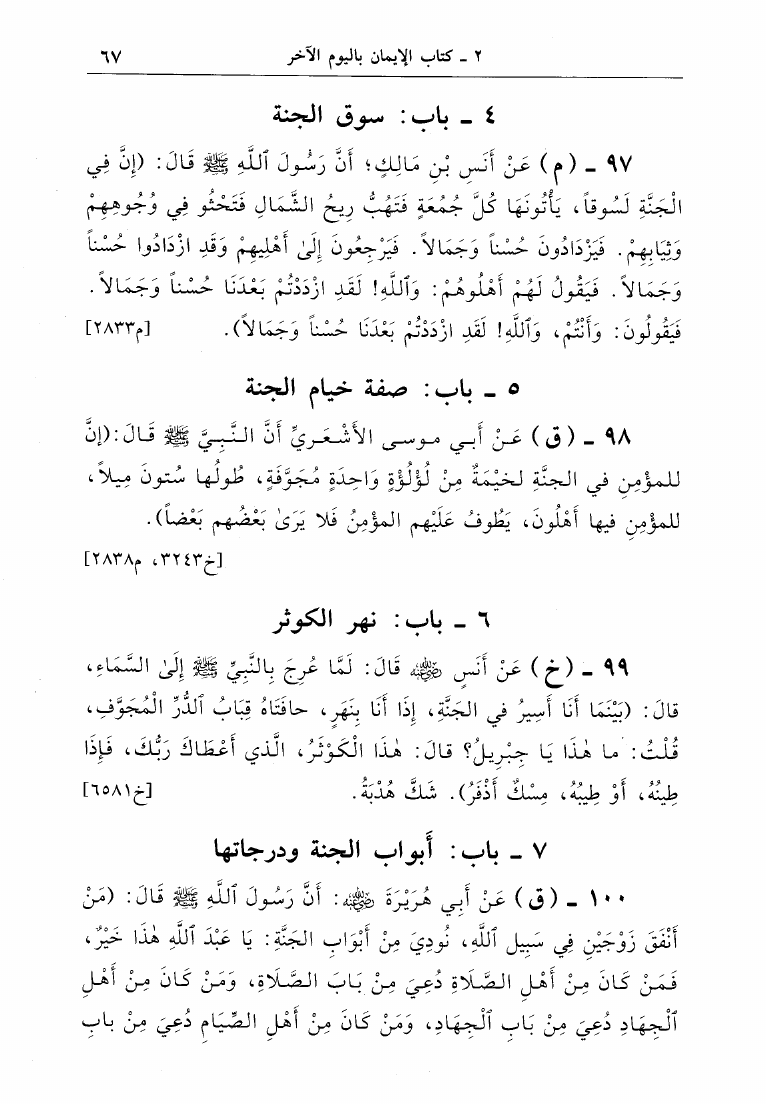 ٢ ـ كتاب الإيمان باليوم الآخر ٦٧
٤ ـ باب: سوق الجنة
٩٧ ـ (م) عَنْ أَنَسِ بْنِ مَالِكٍ؛ أَنَّ رَسُولَ ٱللَّهِ ﷺ قَالَ: (إِنَّ فِي
الْجَنَّةِ لَسُوقاً، يَأْتُونَهَا كُلَّ جُمُعَةٍ فَتَهُبُّ رِيحُ الشَّمَالِ فَتَحْثُو فِي وُجُوهِهِمْ
وَثِيَابِهِمْ. فَيَزْدَادُونَ حُسْناً وَجَمَالاً. فَيَرْجِعُونَ إِلَىٰ أَهْلِيهِمْ وَقَدِ ازْدَادُوا حُسْناً
وَجَمَالاً. فَيَقُولُ لَهُمْ أَهْلُوهُمْ: وَٱللَّهِ! لَقَدِ ازْدَدْتُمْ بَعْدَنَا حُسْناً وَجَمَالاً.
فَيَقُولُونَ: وَأَنْتُمْ، وَٱللَّهِ! لَقَدِ ازْدَدْتُمْ بَعْدَنَا حُسْناً وَجَمَالاً). [م٢٨٣٣]
٥ ـ باب: صفة خيام الجنة
٩٨ ـ (ق) عَـنْ أَبـي مـوسـى الأَشْـعَـرِيِّ أَنَّ الـنَّـبِـيَّ ﷺ قَـالَ:(إِنَّ
للمؤْمِنِ في الجنَّةِ لخيْمَةٌ مِنْ لُؤْلُؤَةٍ وَاحِدَةٍ مُجَوَّفَةٍ، طُولُها سُتونَ مِيلاً،
للمؤمِنِ فيها أَهْلُونَ، يَطُوفُ عَلَيْهِم المؤمِنُ فَلا يَرَىٰ بَعْضُهم بَعْضاً).
[خ٣٢٤٣، م٢٨٣٨]
٦ ـ باب: نهر الكوثر
٩٩ ـ (خ) عَنْ أَنَسٍ رضي الله عنه قَالَ: لَمَّا عُرِجَ بِالنَّبِيِّ ﷺ إِلَىٰ السَّمَاءِ،
قالَ: (بَيْنَمَا أَنَا أَسِيرُ في الجَنَّةِ، إِذَا أَنَا بِنَهَرٍ، حافَتَاهُ قِبَابُ ٱلدُّرِّ الْمُجَوَّفِ،
قُلْتُ: ما هٰذَا يَا جِبْرِيلُ؟ قالَ: هٰذَا الْكَوْثَرُ، الَّذي أَعْطَاكَ رَبُّكَ، فَإِذَا
طِينُهُ، أَوْ طِيبُهُ، مِسْكٌ أَذْفَرُ). شَكَّ هُدْبَةُ. [خ٦٥٨١]
٧ ـ باب: أَبواب الجنة ودرجاتها
١٠٠ ـ (ق) عَنْ أَبِي هُرَيْرَةَ رضي الله عنه: أَنَّ رَسُولَ ٱللَّهِ ﷺ قَالَ: (مَنْ
أَنْفَقَ زَوْجَيْنِ فِي سَبِيلِ ٱللَّهِ، نُودِيَ مِنْ أَبْوَابِ الجَنَّةِ: يَا عَبْدَ ٱللَّهِ هٰذَا خَيْرٌ،
فَمَنْ كَانَ مِنْ أَهْلِ الصَّلَاةِ دُعِيَ مِنْ بَابِ الصَّلَاةِ، وَمَنْ كَانَ مِنْ أَهْلِ
ٱلْجِهَادِ دُعِيَ مِنْ بَابِ ٱلْجِهَادِ، وَمَنْ كَانَ مِنْ أَهْلِ الصِّيَامِ دُعِيَ مِنْ بابِ